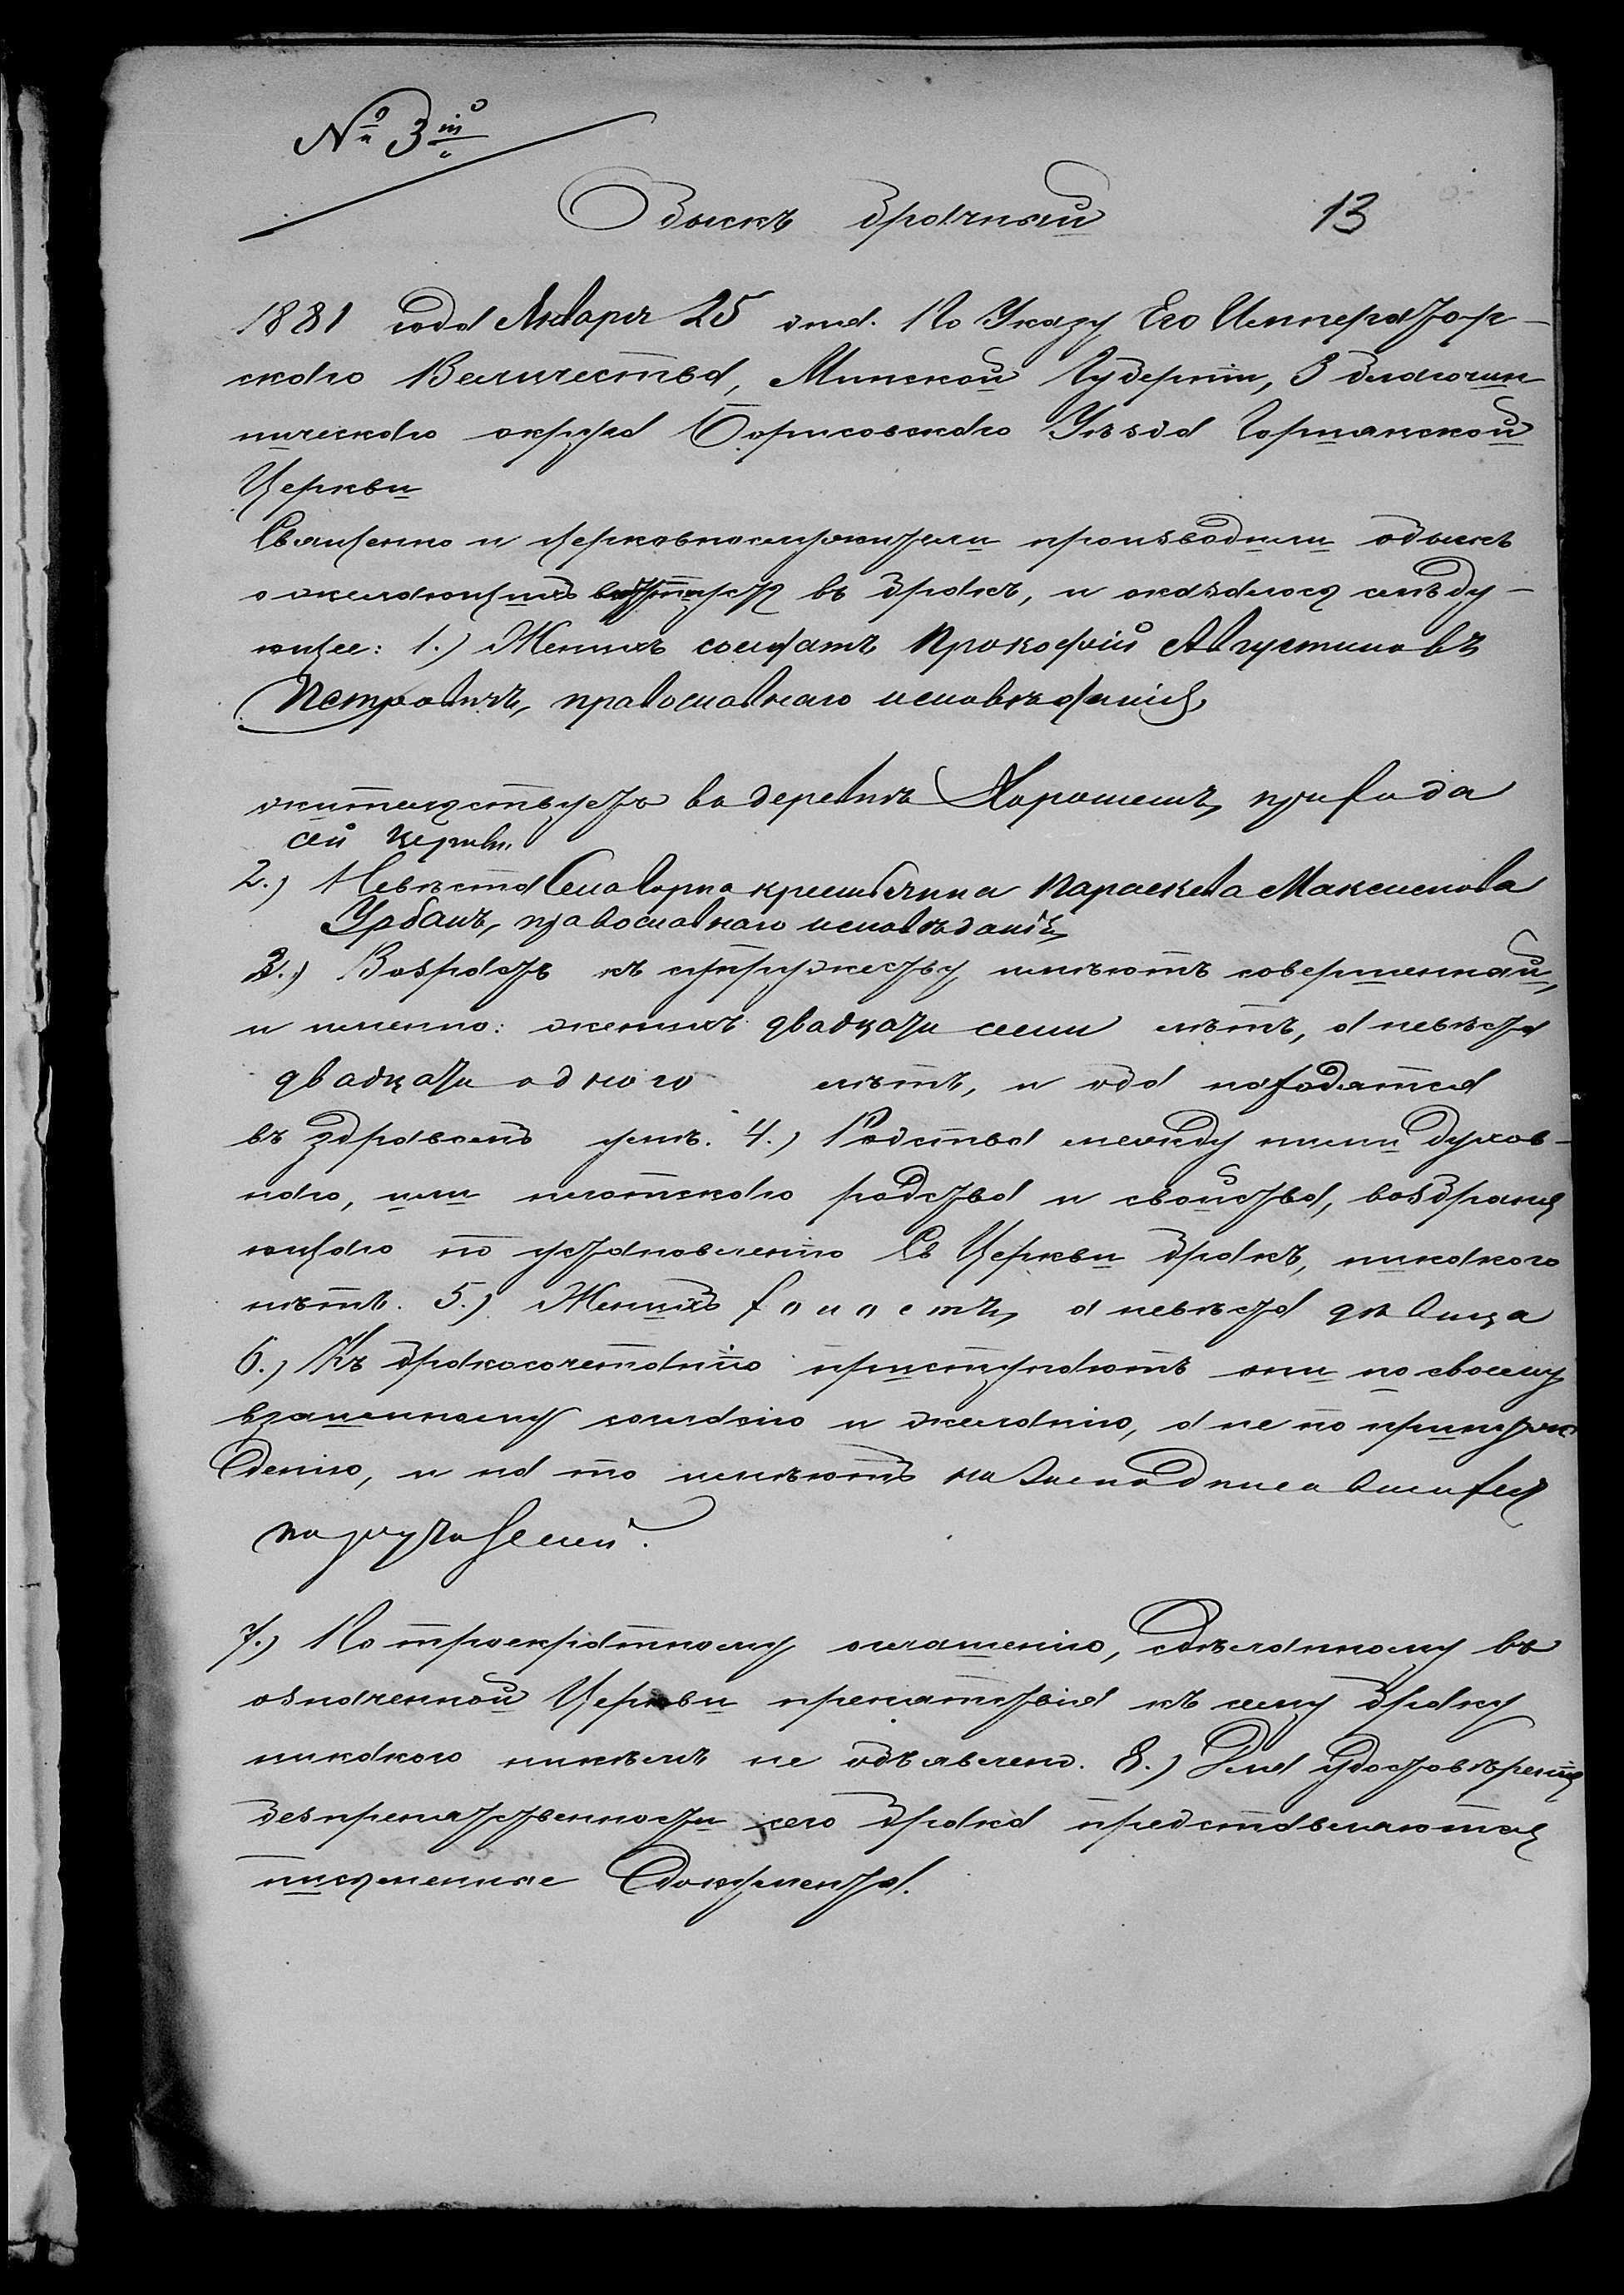 № 3й
Обыскъ брачный 13
1881 года Января 25 дня. По Указу Его Император-
скаго Величества, Минской Губерніи, 3 благочин
ническаго округа Борисовскаго Уѣзда
Церкви
Священно и церковнослужители производили обыскъ
о желающихъ вступить въ бракъ, и оказалось слѣду-
ющее: 1.) Женихъ солдатъ Прокофій Августиновъ
Петровичъ, православнаго исповѣданія,
жительствуетъ въ деревнѣ прихода
сей Церкви.
2.) Невѣста крестьянка Параскева Максимова
Урбанъ, православнаго исповѣданія,
3.) Возрастъ къ супружеству имѣютъ совершенный,
и именно: женихъ двадцати семи лѣтъ, а невѣста
двадцати одного лѣтъ, и оба находятся
въ здравомъ умѣ. 4.) Родства между ними духов-
наго, или плотскаго родства и свойства, возбраня
ющаго по установленію Св Церкви бракъ, никакого
нѣтъ. 5.) Женихъ холостъ, а невѣста дѣвица
6.) Къ бракосочетанію приступаютъ они по своему
взаименному согласію и желанію, а не по принуж
денію, и на то имѣютъ

7.) По троекратному оглашенію, сдѣланному въ
означенной Церкви препятствія къ сему браку
никакого никѣмъ не объявлено. 8.) Для удостовѣренія
безпрепятственности сего брака представляются
письменные Документы.